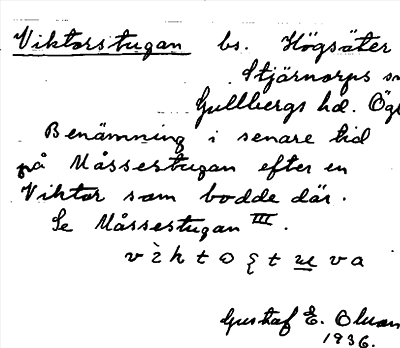 Viktorstugan bs. Högsäter
Stjärnorps sn
Gullbergs hd. Ögl
Benämning i senare tid
på Måssestugan efter en
Viktor som bodde där.
Se Måssestugan III.
Gustaf E.
1936.